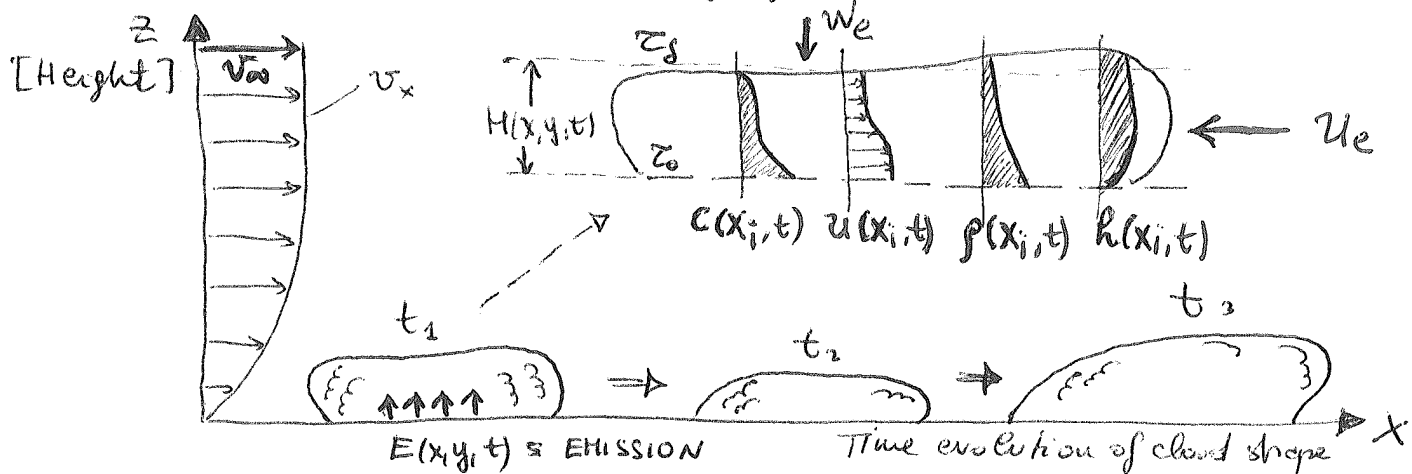 z
[Height]
v∞
v_x
w_e
τ_δ
H(x,y,t)
τ_o
u_e
c(x_i,t) u(x_i,t) ρ(x_i,t) h(x_i,t)
t_1
t_2
t_3
x
E(x,y,t) = EMISSION
Time evolution of cloud shape